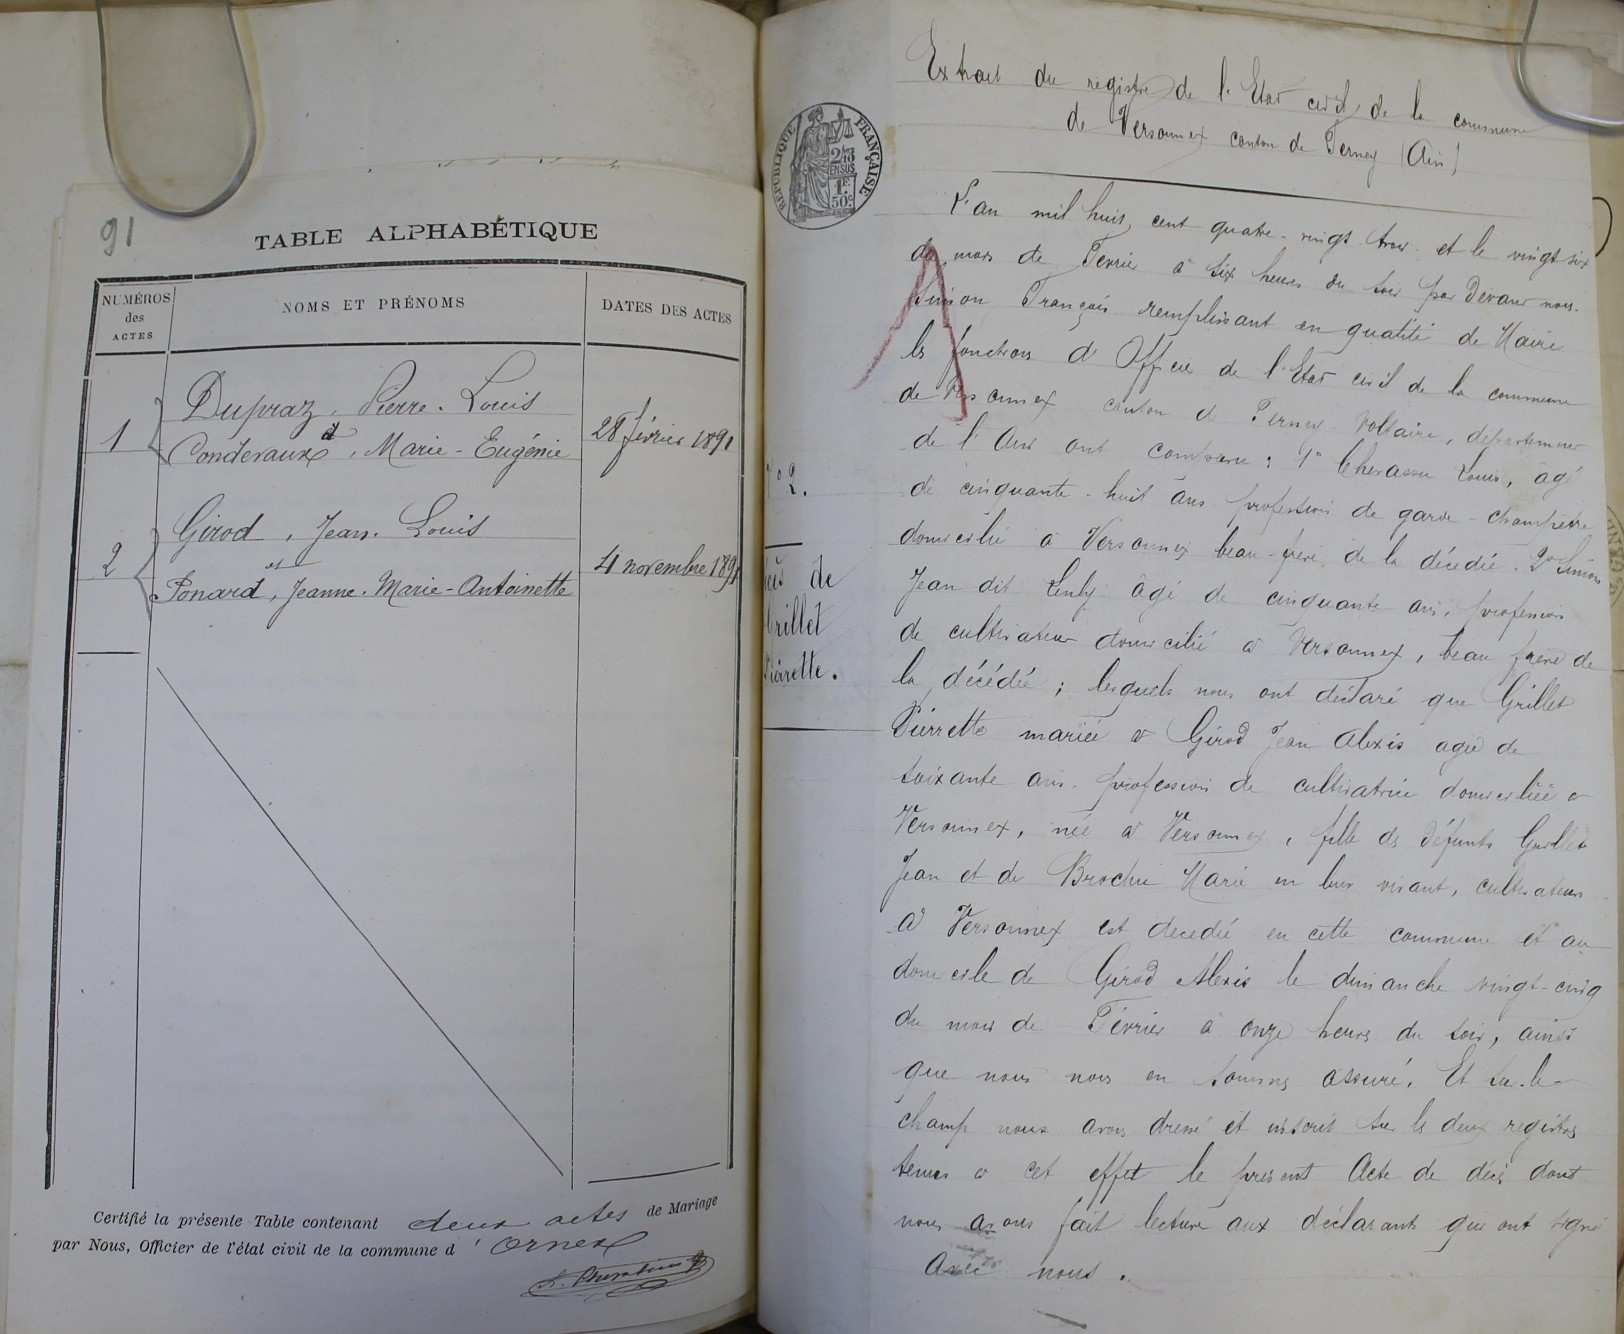 91
TABLE ALPHABÉTIQUE
NUMÉROS des ACTES
NOMS ET PRÉNOMS
DATES DES ACTES
1
Dupraz, Pierre-Louis
et
Condevaux, Marie-Eugénie
28 février 1891
2
Girod, Jean-Louis
et
Ponard, Jeanne-Marie-Antoinette
4 novembre 1891
Certifié la présente Table contenant deux actes de Mariage
par Nous, Officier de l'état civil de la commune d'Ornex
RÉPUBLIQUE FRANÇAISE
1F.
50c
No 2.
de
Grillet
Pierrette.
Extrait du registre de l'Etat civil de la commune
de Versonnex canton de Ferney (Ain)
L'an mil huit cent quatre-vingt trois et le vingt six
du mois de Fevrier à six heures du soir par devant nous
Simon François remplissant en qualité de Maire
les fonctions d'Officier de l'Etat civil de la commune
de Versonnex canton de Ferney-Voltaire, departement
de l'Ain ont comparu : 1° Louis, âgé
de cinquante-huit ans profession de garde-champêtre
domicilié à Versonnex beau-frère de la décédée. 2° Simon
Jean dit âgé de cinquante ans, profession
de cultivateur domicilié à Versonnex, beau frère de
la décédée ; lesquels nous ont déclaré que Grillet
Pierrette mariée à Girod Jean Alexis agée de
soixante ans profession de cultivatrice domiciliée à
Versonnex, née à Versonnex, fille de défunts Grillet
Jean et de Brochu Marie en leur vivant, cultivateurs
à Versonnex est decedée en cette commune et au
domicile de Girod Alexis le dimanche vingt-cinq
du mois de Février à onze heures du soir, ainsi
que nous nous en sommes assuré. Et sur-le-
champ nous avons dressé et inscrit sur les deux registres
tenus à cet effet le présent Acte de décès dont
nous avons fait lecture aux déclarants qui ont signé
avec nous.